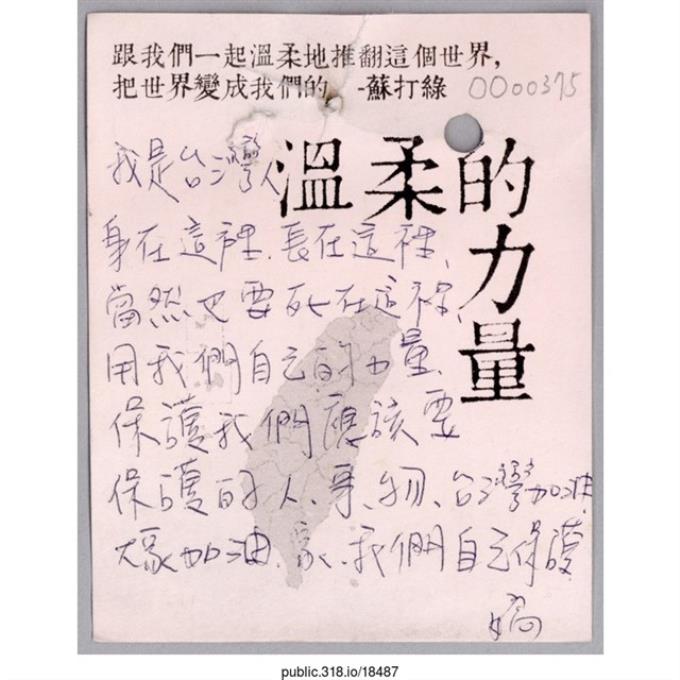 跟我們一起溫柔地推翻這個世界,
把世界變成我們的。 -蘇打綠
0000375
溫柔的力量
我是台灣人
身在這裡、長在這裡、
當然也要死在這裡、
用我們自己的力量、
保護我們應該要
保護的人、事、物、台灣加油
大家加油、家、我們自己保護
public.318.io/18487